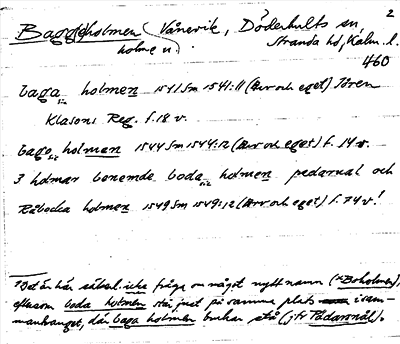 2
Baggeholmen (Vånevik, Döderhults sn,
holme n.
Stranda hd, Kalm. l.
460
baga holmen 1541 Sm 1541:11 (Arv och eget) Jören
sic
Klasons Reg. f. 18 v.
bago holman 1544 Sm 1544:12 (Arv och eget) f. 14 v.
sic
3 holmar benemde boda holmen pedarnal och
sic
Råbocka holmen 1549 Sm 1549:12 (Arv och eget) f. 74 v.¹
¹ Det är här säkerl. icke fråga om något nytt namn (*Boholmen),
eftersom boda holmen står just på samma plats i sam-
manhanget, där baga holmen brukar stå (jfr Pådarnål).